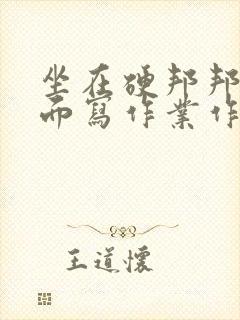 坐在硬邦邦
而寫作業作
王道懷